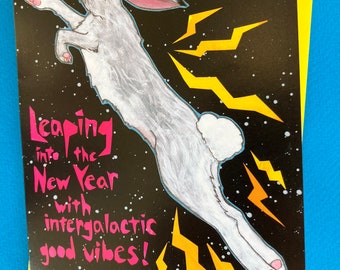 Leaping
into the
New Year
with
intergalactic
good vibes!